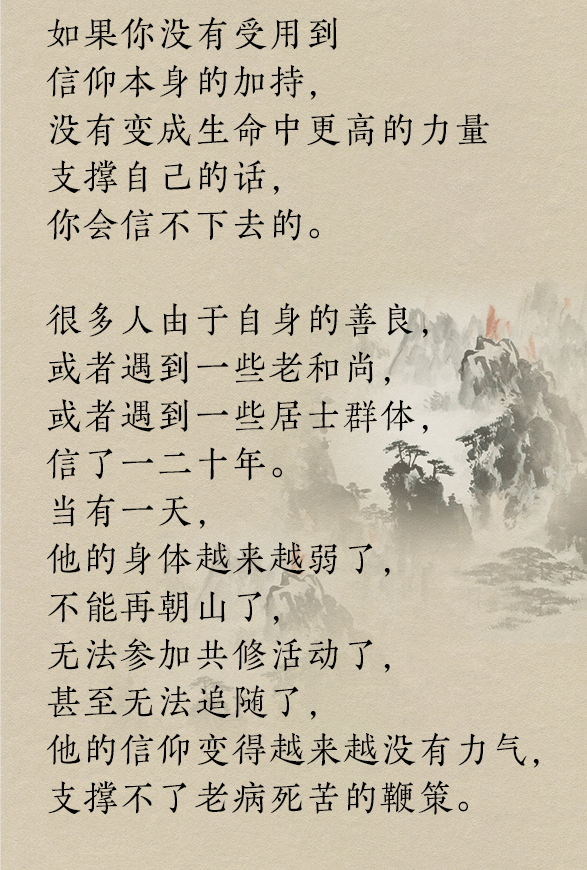 如果你没有受用到
信仰本身的加持，
没有变成生命中更高的力量
支撑自己的话，
你会信不下去的。
很多人由于自身的善良，
或者遇到一些老和尚，
或者遇到一些居士群体，
信了一二十年。
当有一天，
他的身体越来越弱了，
不能再朝山了，
无法参加共修活动了，
甚至无法追随了，
他的信仰变得越来越没有力气，
支撑不了老病死苦的鞭策。